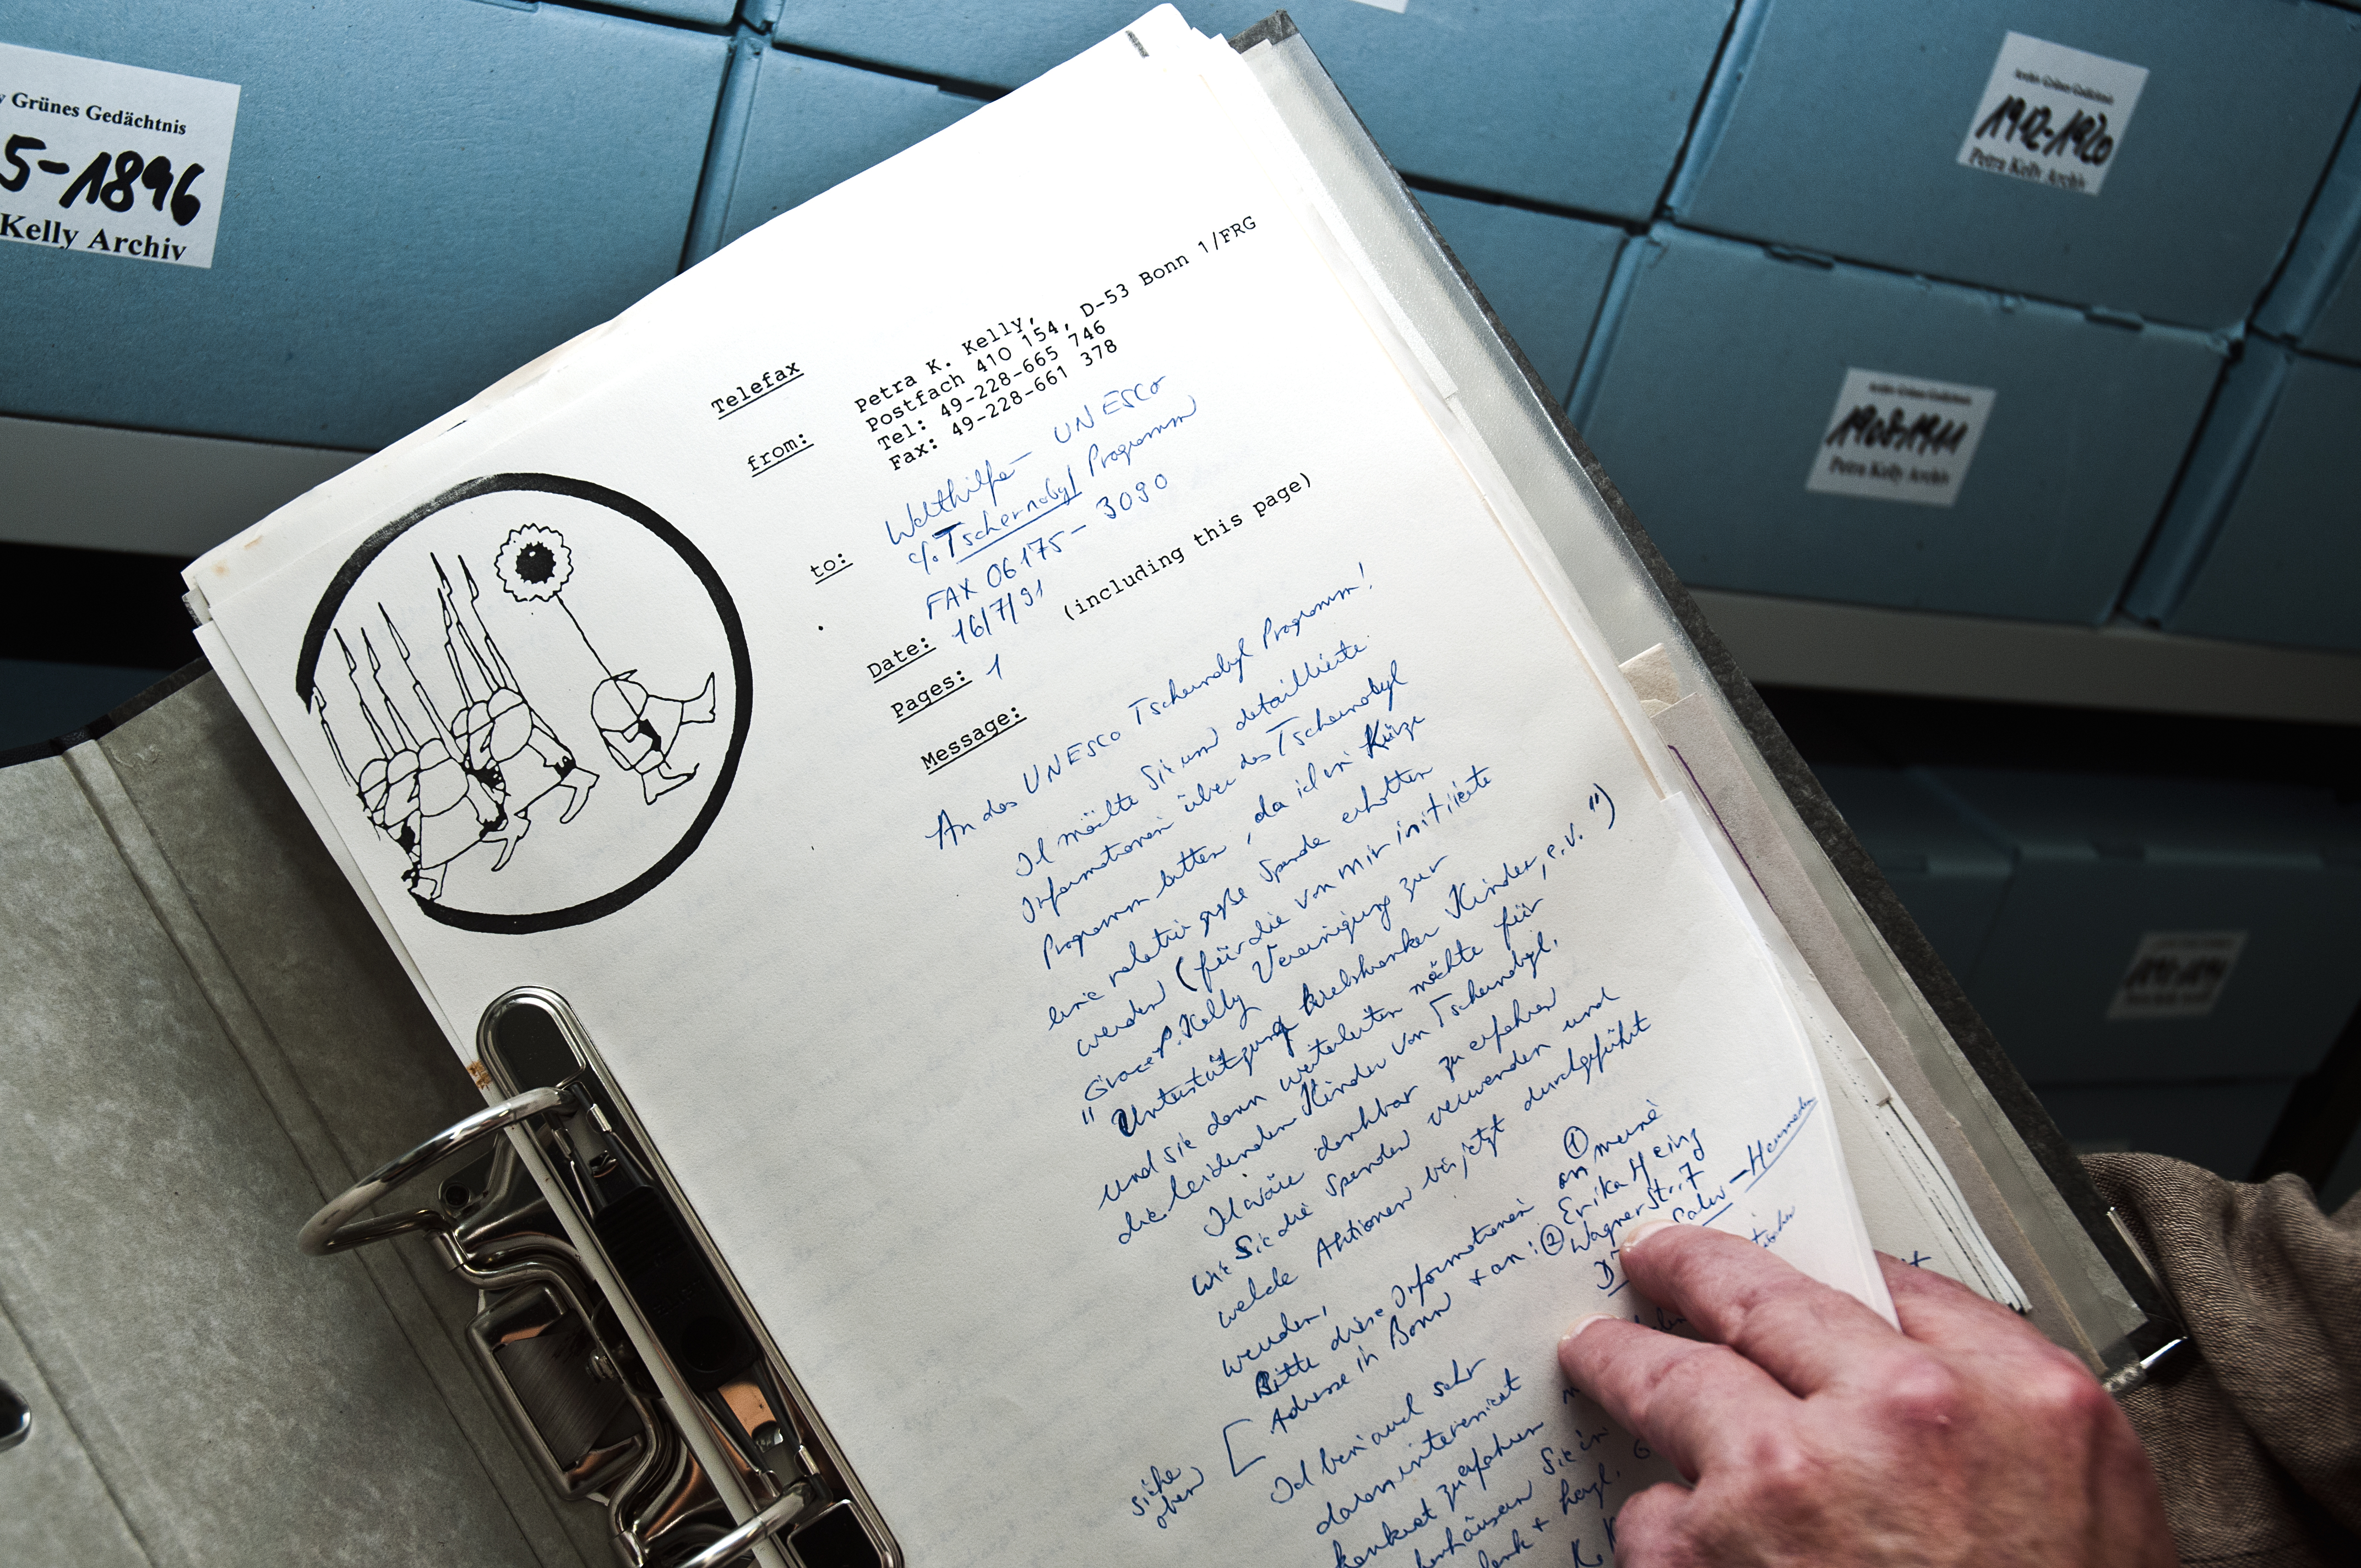 Grünes Gedächtnis
5-1896
Kelly Archiv
Archiv Grünes Gedächtnis
1912-1920
Petra Kelly Archiv
Archiv Grünes Gedächtnis
1908-1911
Petra Kelly Archiv
Telefax
from:
Petra K. Kelly,
Postfach 410 154, D-53 Bonn 1/FRG
Tel: 49-228-665 746
Fax: 49-228-661 378
to:
Welthilfe - UNESCO
c/o Tschernobyl Programm
FAX 06175-3090
Date: 16/7/91
Pages: 1 (including this page)
Message:
An das UNESCO Tschernobyl Programm!
Ich möchte Sie um detaillierte
Informationen über das Tschernobyl
Programm bitten, da ich in Kürze
eine relativ große Spende erhalten
werden (für die von mir initiierte
"Grace P. Kelly Vereinigung zur
Unterstützung krebskranker Kinder, e.V.")
und sie dann weiterleiten möchte für
die leidenden Kinder von Tschernobyl.
Ich wäre dankbar zu erfahren
wie Sie die Spenden verwenden und
welche Aktionen bis jetzt durchgeführt
wurden.
Bitte diese Informationen ① an meine
Adresse in Bonn + an: ② Erika Heinz
Wagner Str. 7
D
siehe
oben
Ich bin auch sehr
daran interessiert
konkret zu erfahren
Sie in